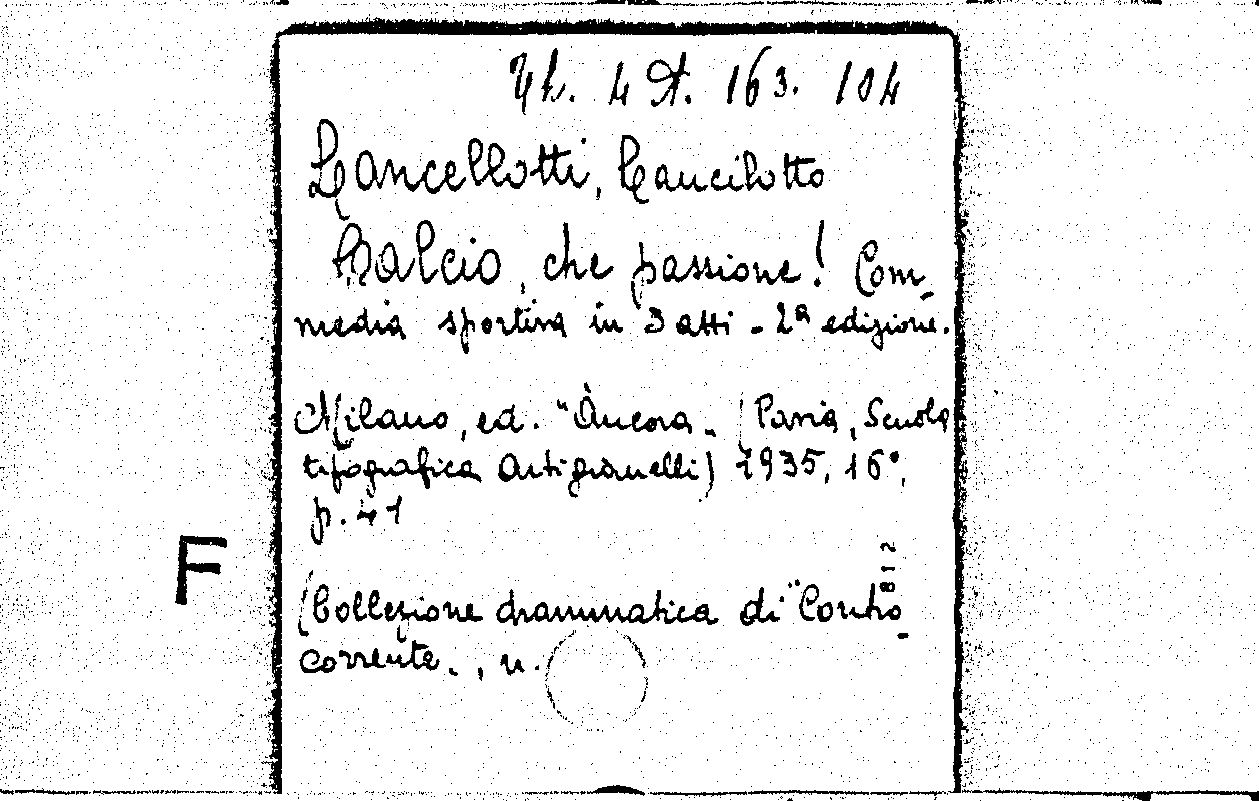 Th. 4 A. 163. 104
Lancellotti, Lancilotto
Calcio, che passione! Com-
media sportiva in 3 atti - 2ª edizione.
Milano, ed. "Àncora" (Pavia, Scuola
tipografica Artigianelli) 1935, 16°,
p. 41
F
812
(Collezione drammatica di "Contro-
corrente", n.